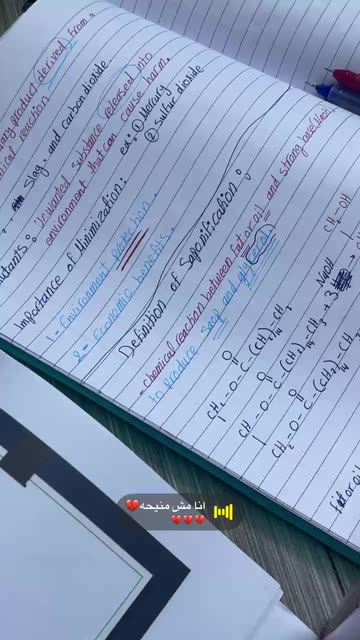 ary product derived from a
ical reaction
Slag. and carbon dioxide
utants: Unwanted substance released into
environment that can cause harm.
ex: ① Mercury
② sulfur dioxide
Importance of Minimization:
1- Environment protection.
2- Economic benefits.
Definition of Saponification:
- chemical reaction between fat or oil and strong base
to produce soap and glycerol
CH2-O-C-(CH2)14-CH3
O
CH-O-C-(CH2)14-CH3 + 3 NaOH
O
CH2-O-C-(CH2)14-CH3
O
CH2OH
fat or oil
انا مش منيحه💔
💔💔💔